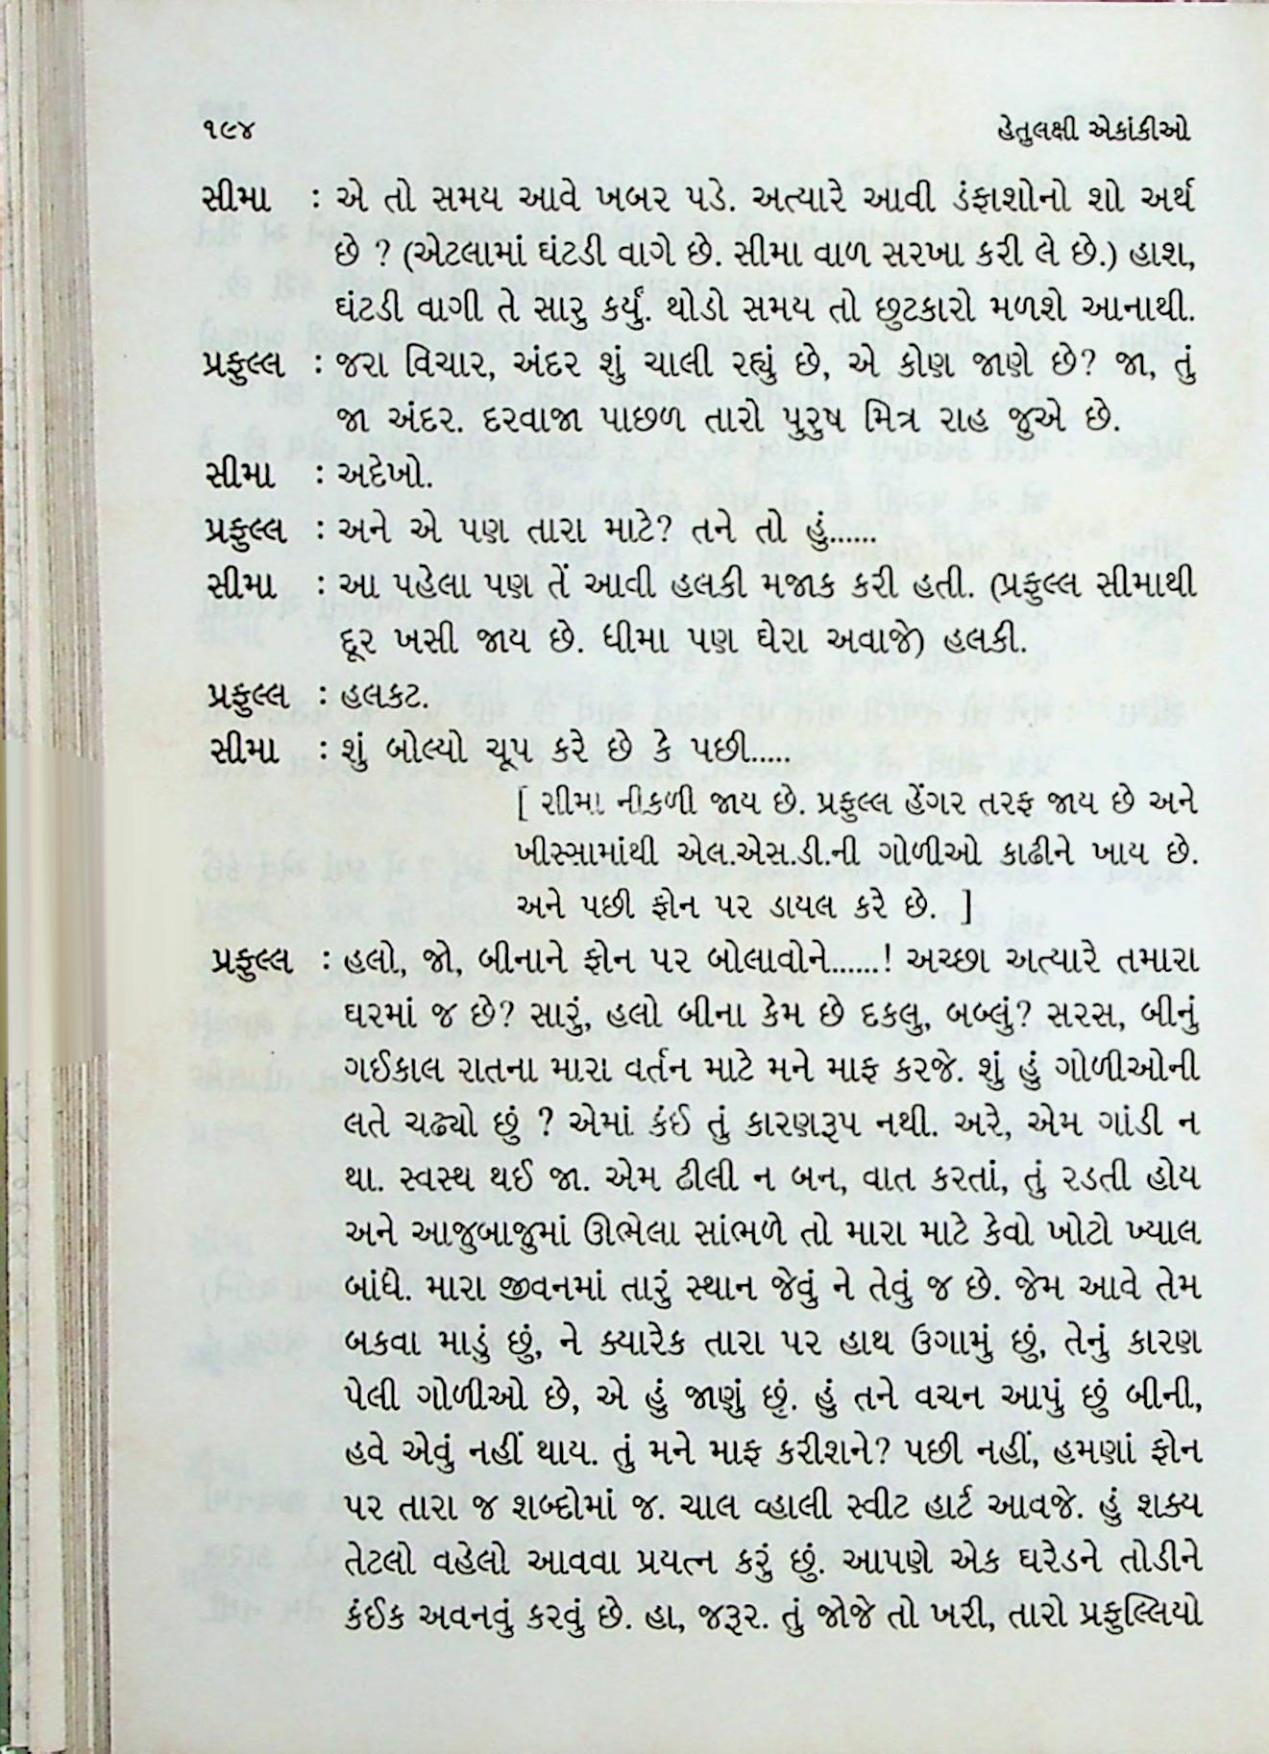 ૧૯૪ હેતુલક્ષી એકાંકીઓ
સીમા : એ તો સમય આવે ખબર પડે. અત્યારે આવી ડંફાશોનો શો અર્થ
છે ? (એટલામાં ઘંટડી વાગે છે. સીમા વાળ સરખા કરી લે છે.) હાશ,
ઘંટડી વાગી તે સારુ કર્યું. થોડો સમય તો છુટકારો મળશે આનાથી.
પ્રફુલ્લ : જરા વિચાર, અંદર શું ચાલી રહ્યું છે, એ કોણ જાણે છે? જા, તું
જા અંદર. દરવાજા પાછળ તારો પુરુષ મિત્ર રાહ જુએ છે.
સીમા : અદેખો.
પ્રફુલ્લ : અને એ પણ તારા માટે? તને તો હું......
સીમા : આ પહેલા પણ તેં આવી હલકી મજાક કરી હતી. (પ્રફુલ્લ સીમાથી
દૂર ખસી જાય છે. ધીમા પણ ઘેરા અવાજે) હલકી.
પ્રફુલ્લ : હલકટ.
સીમા : શું બોલ્યો ચૂપ કરે છે કે પછી.....
[ સીમા નીકળી જાય છે. પ્રફુલ્લ હેંગર તરફ જાય છે અને
ખીસ્સામાંથી એલ.એસ.ડી.ની ગોળીઓ કાઢીને ખાય છે.
અને પછી ફોન પર ડાયલ કરે છે. ]
પ્રફુલ્લ : હલો, જો, બીનાને ફોન પર બોલાવોને......! અચ્છા અત્યારે તમારા
ઘરમાં જ છે? સારું, હલો બીના કેમ છે દકલુ, બબ્લું? સરસ, બીનું
ગઈકાલ રાતના મારા વર્તન માટે મને માફ કરજે. શું હું ગોળીઓની
લતે ચઢ્યો છું ? એમાં કંઈ તું કારણરૂપ નથી. અરે, એમ ગાંડી ન
થા. સ્વસ્થ થઈ જા. એમ ઢીલી ન બન, વાત કરતાં, તું રડતી હોય
અને આજુબાજુમાં ઊભેલા સાંભળે તો મારા માટે કેવો ખોટો ખ્યાલ
બાંધે. મારા જીવનમાં તારું સ્થાન જેવું ને તેવું જ છે. જેમ આવે તેમ
બકવા માડું છું, ને ક્યારેક તારા પર હાથ ઉગામું છું, તેનું કારણ
પેલી ગોળીઓ છે, એ હું જાણું છું. હું તને વચન આપું છું બીની,
હવે એવું નહીં થાય. તું મને માફ કરીશને? પછી નહીં, હમણાં ફોન
પર તારા જ શબ્દોમાં જ. ચાલ વ્હાલી સ્વીટ હાર્ટ આવજે. હું શક્ય
તેટલો વહેલો આવવા પ્રયત્ન કરું છું. આપણે એક ઘરેડને તોડીને
કંઈક અવનવું કરવું છે. હા, જરૂર. તું જોજે તો ખરી, તારો પ્રફુલ્લિયો